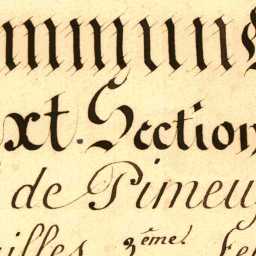 mmun
xt. Section
de Pimeu
illes 2ème! Fe